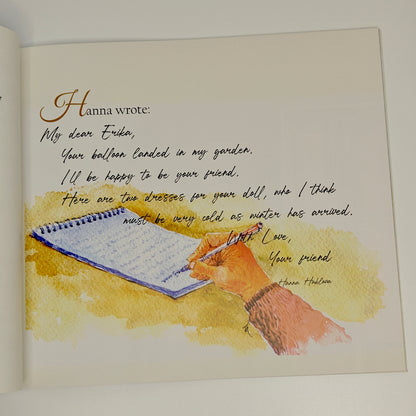 Hanna wrote:
My dear Erika,
Your balloon landed in my garden.
I'll be happy to be your friend.
Here are two dresses for your doll, who I think
must be very cold as winter has arrived.
With Love,
Your friend
Hanna Hoklova